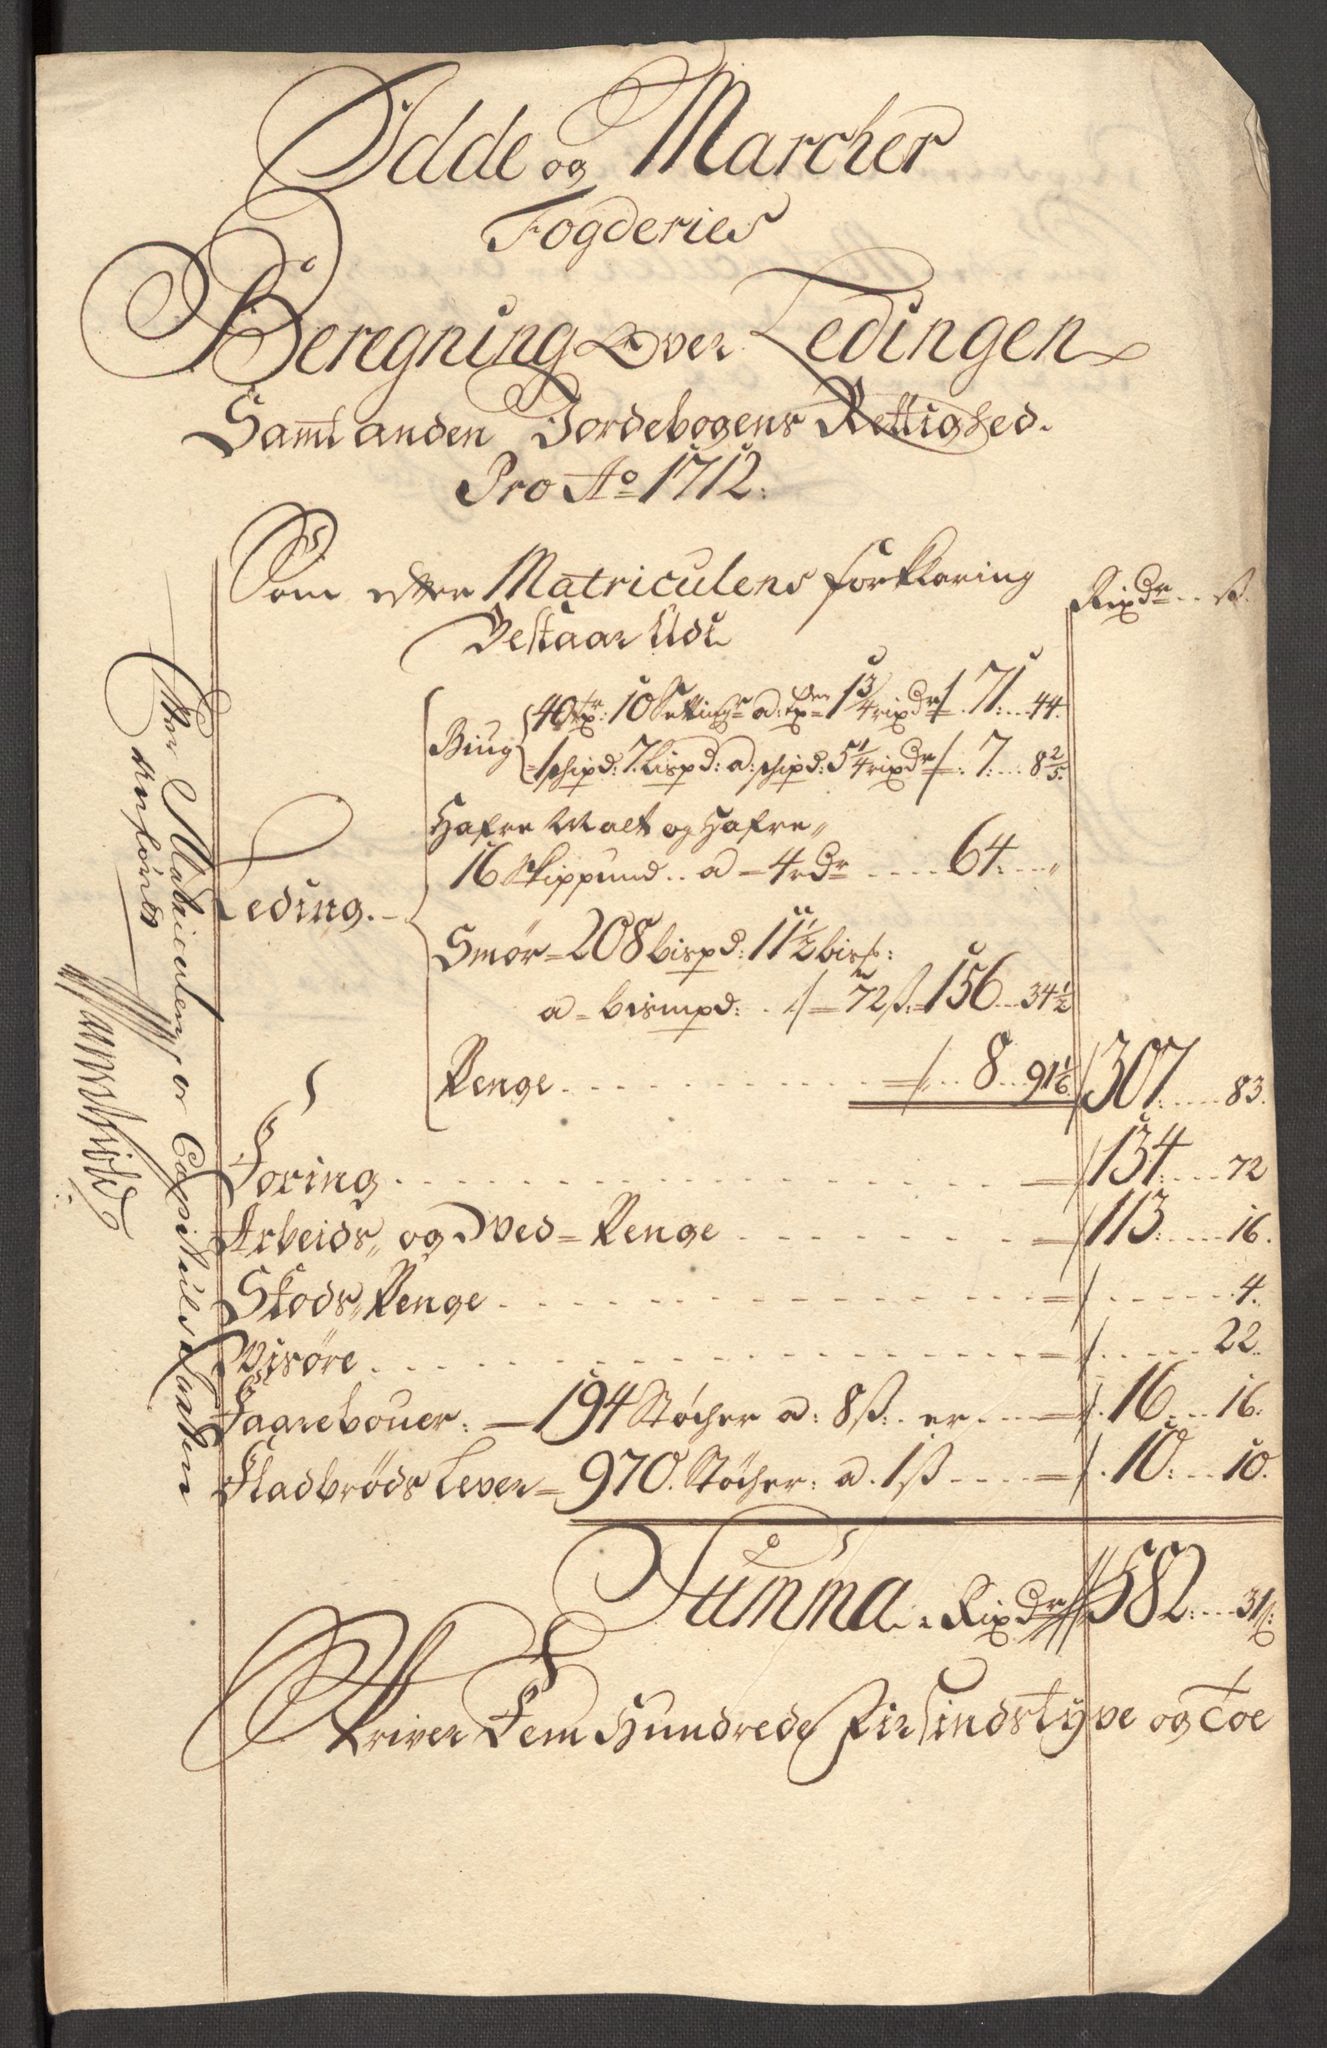 Idde og Marcher
Fogderies
Beregning Over Ledingen
Samt anden Jordebogens Rettighed.
Pro Ao 1712.
Som efter Matriculens forklaring
Bestaar Udi
Rixdr .. ß.
Leding.
Biug 40 tpr: 10 Settingr a: tpn 1 3/4 rixdr /. 71: .. 44.
1 schipd: 7 Lispd: a: schipd: 5 1/4 rixdr /: 7: ... 8 2/5.
Hafre Malt og Hafre
16 Skippund .. a - 4 rdr ..... 64: ... "
Smør = 208 bispd: 11 1/2 bis:
a = bismpd: . /= 72 ß: = 156 .. 34 1/2
Penge ............. /... 8 .. 91 1/6 / 307: .... 83.
Foring ............. / 134: .... 72
Arbeids, og Ved = Penge ........ / 113: .... 16.
Skods, Penge ............. / ...... 4.
Visøre ............. / ..... 22.
Faarebouer: = 194 Støcher a: 8 ß: . er .... /. 16 ... 16.
Fladbrøds Lever = 970. Støcher: a. 1 ß .... /. 10: ... 10.
Summa .. Rixdr // 582: ... 31 ß:
Skriver Fem Hundrede Firsindstyve og Toe
Efter Matriculen, or Capituls Taxten
Anførdt